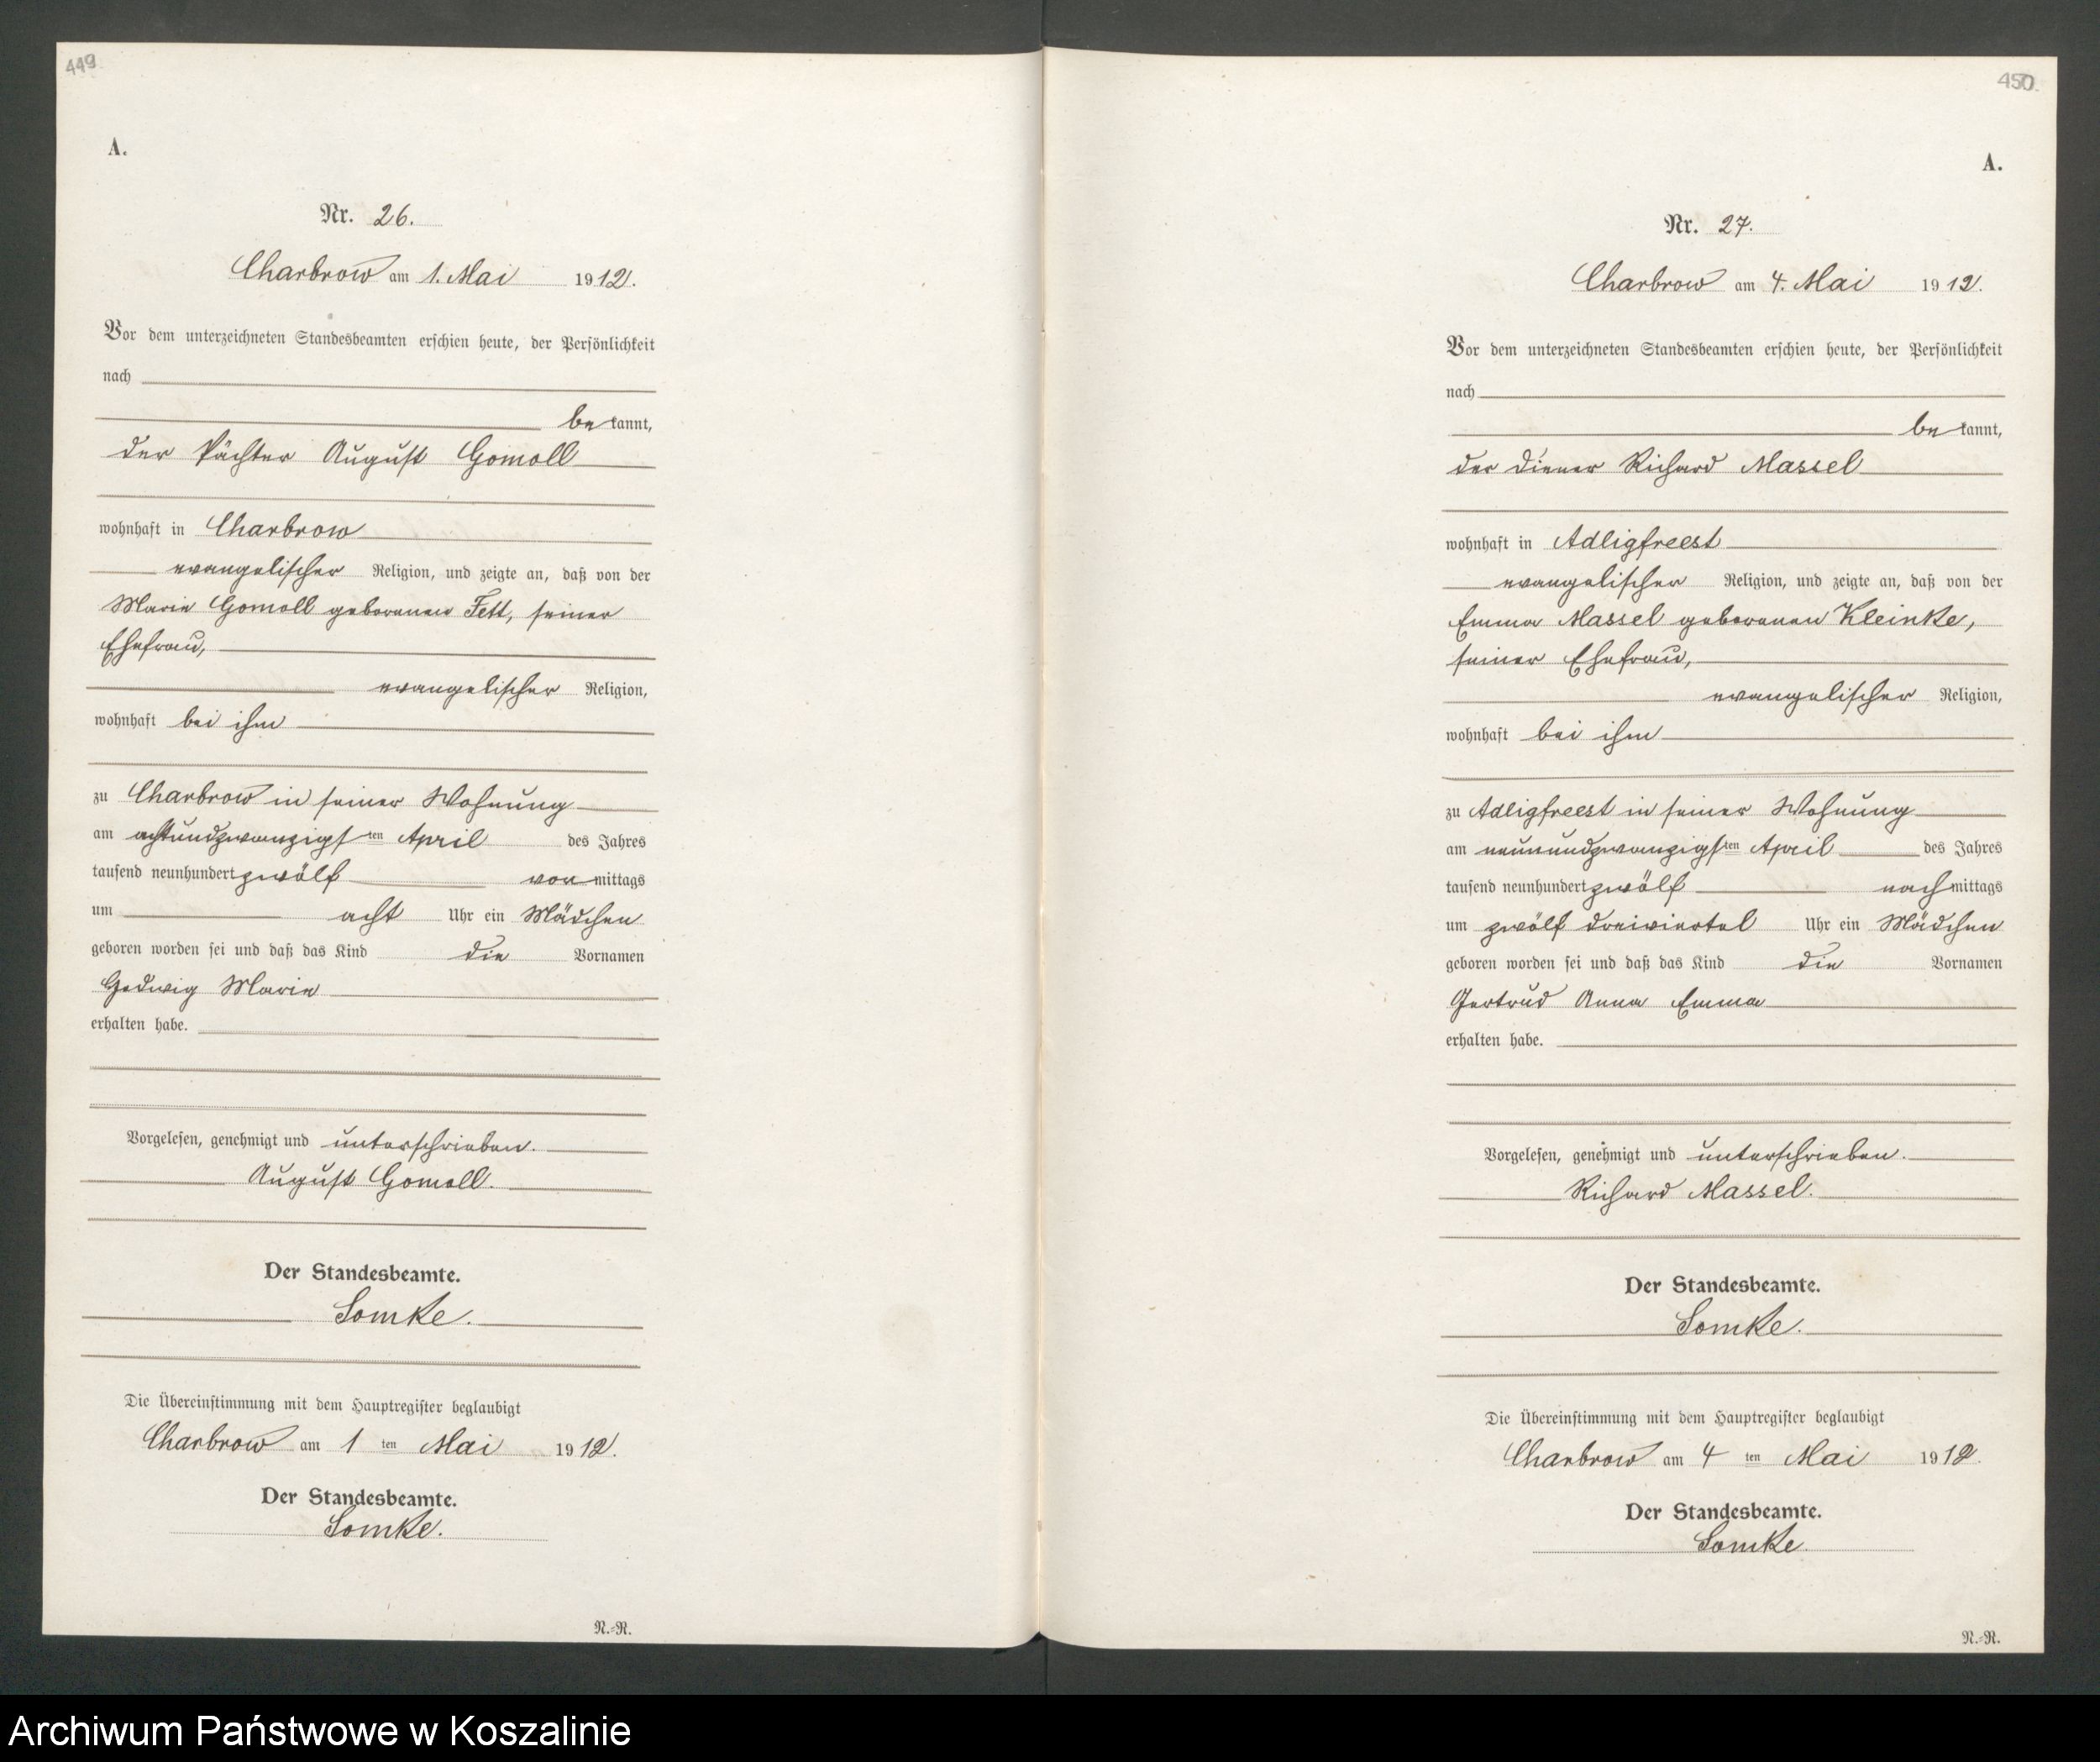 449
A.
Nr. 26.
Charbrow am 1. Mai 1912.
Vor dem unterzeichneten Standesbeamten erschien heute, der Persönlichkeit
nach
bekannt,
der Pächter August Gomoll
wohnhaft in Charbrow
evangelischer Religion, und zeigte an, daß von der
Marie Gomoll geborenen Fett, seiner
Ehefrau,
evangelischer Religion,
wohnhaft bei ihm
zu Charbrow in seiner Wohnung
am achtundzwanzigsten April des Jahres
tausend neunhundert zwölf vormittags
um acht Uhr ein Mädchen
geboren worden sei und daß das Kind die Vornamen
Hedwig Marie
erhalten habe.
Vorgelesen, genehmigt und unterschrieben.
August Gomoll.
Der Standesbeamte.
Lomke.
Die Übereinstimmung mit dem Hauptregister beglaubigt
Charbrow am 1 ten Mai 1912.
Der Standesbeamte.
Lomke.
N.-R.
450.
A.
Nr. 27.
Charbrow am 4. Mai 1912.
Vor dem unterzeichneten Standesbeamten erschien heute, der Persönlichkeit
nach
bekannt,
der Diener Richard Massel
wohnhaft in Adligfreest
evangelischer Religion, und zeigte an, daß von der
Emma Massel geborenen Kleinke,
seiner Ehefrau,
evangelischer Religion,
wohnhaft bei ihm
zu Adligfreest in seiner Wohnung
am neunundzwanzigsten April des Jahres
tausend neunhundert zwölf nachmittags
um zwölf dreiviertel Uhr ein Mädchen
geboren worden sei und daß das Kind die Vornamen
Gertrud Anna Emma
erhalten habe.
Vorgelesen, genehmigt und unterschrieben.
Richard Massel.
Der Standesbeamte.
Lomke.
Die Übereinstimmung mit dem Hauptregister beglaubigt
Charbrow am 4 ten Mai 1912.
Der Standesbeamte.
Lomke.
N.-R.
Archiwum Państwowe w Koszalinie